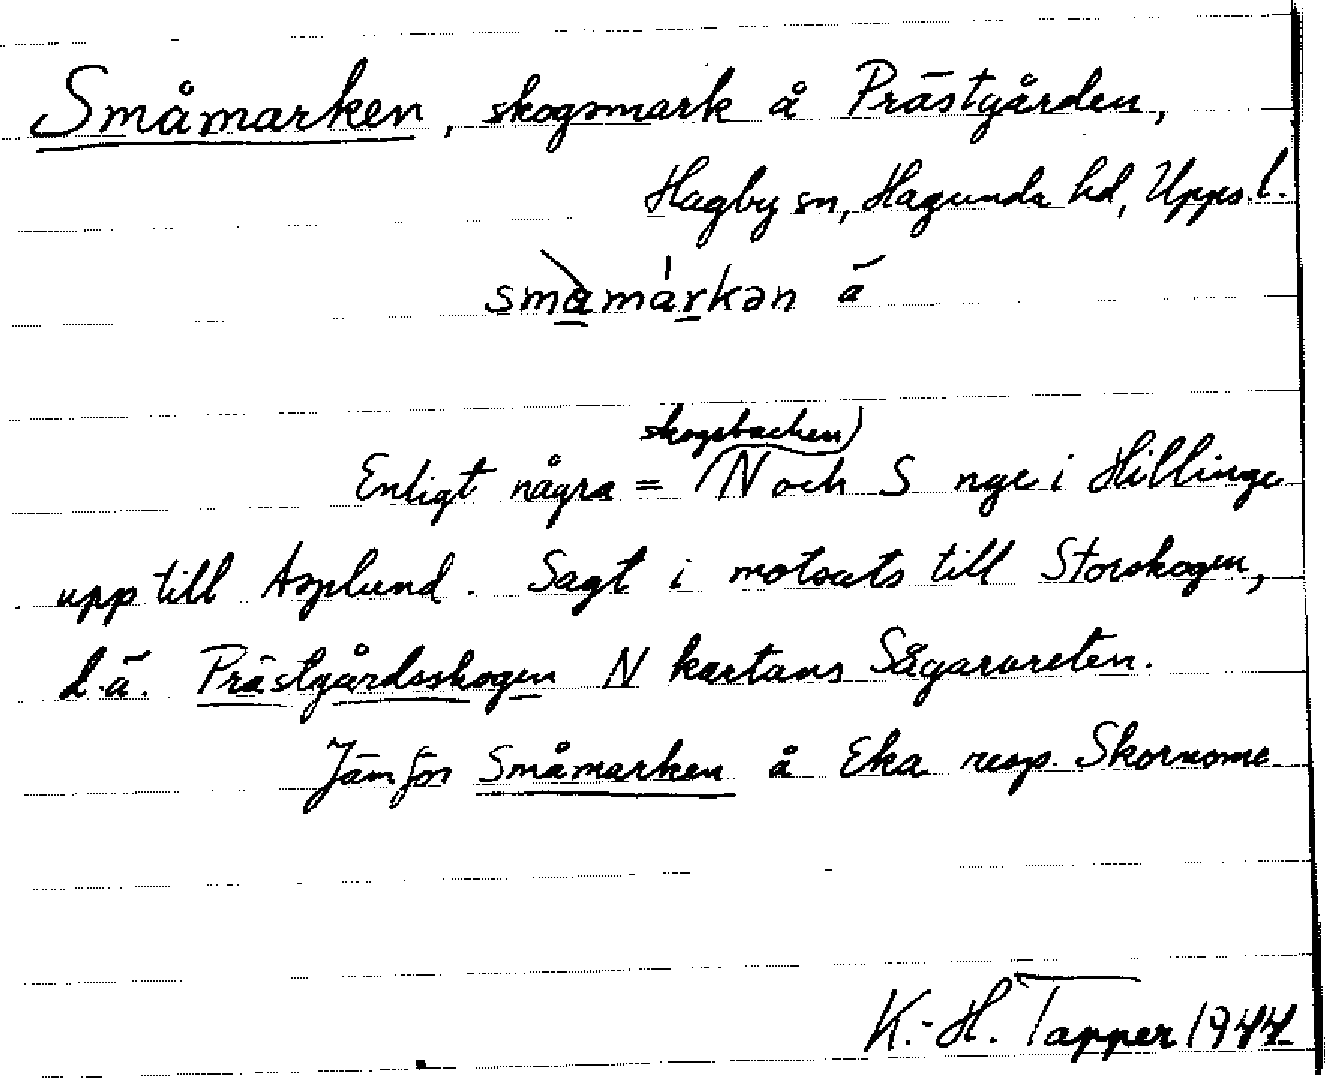 Småmarken, skogsmark å Prästgården,
Hagby sn, Hagunda hd, Upps. l.
småmárkən ä
skogsbacken
Enligt några = N och S nge i Hillinge
upp till Asplund. Sagt i motsats till Storskogen,
d.ä. Prästgårdsskogen N kartans Sågarvreten.
Jämför Småmarken å Eka resp. Skornome
K.-H. Tapper 1944